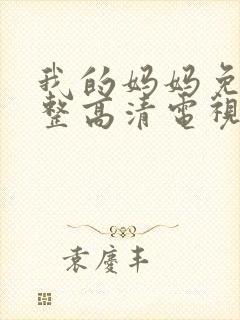 我的妈妈免
整高清電視
袁慶丰